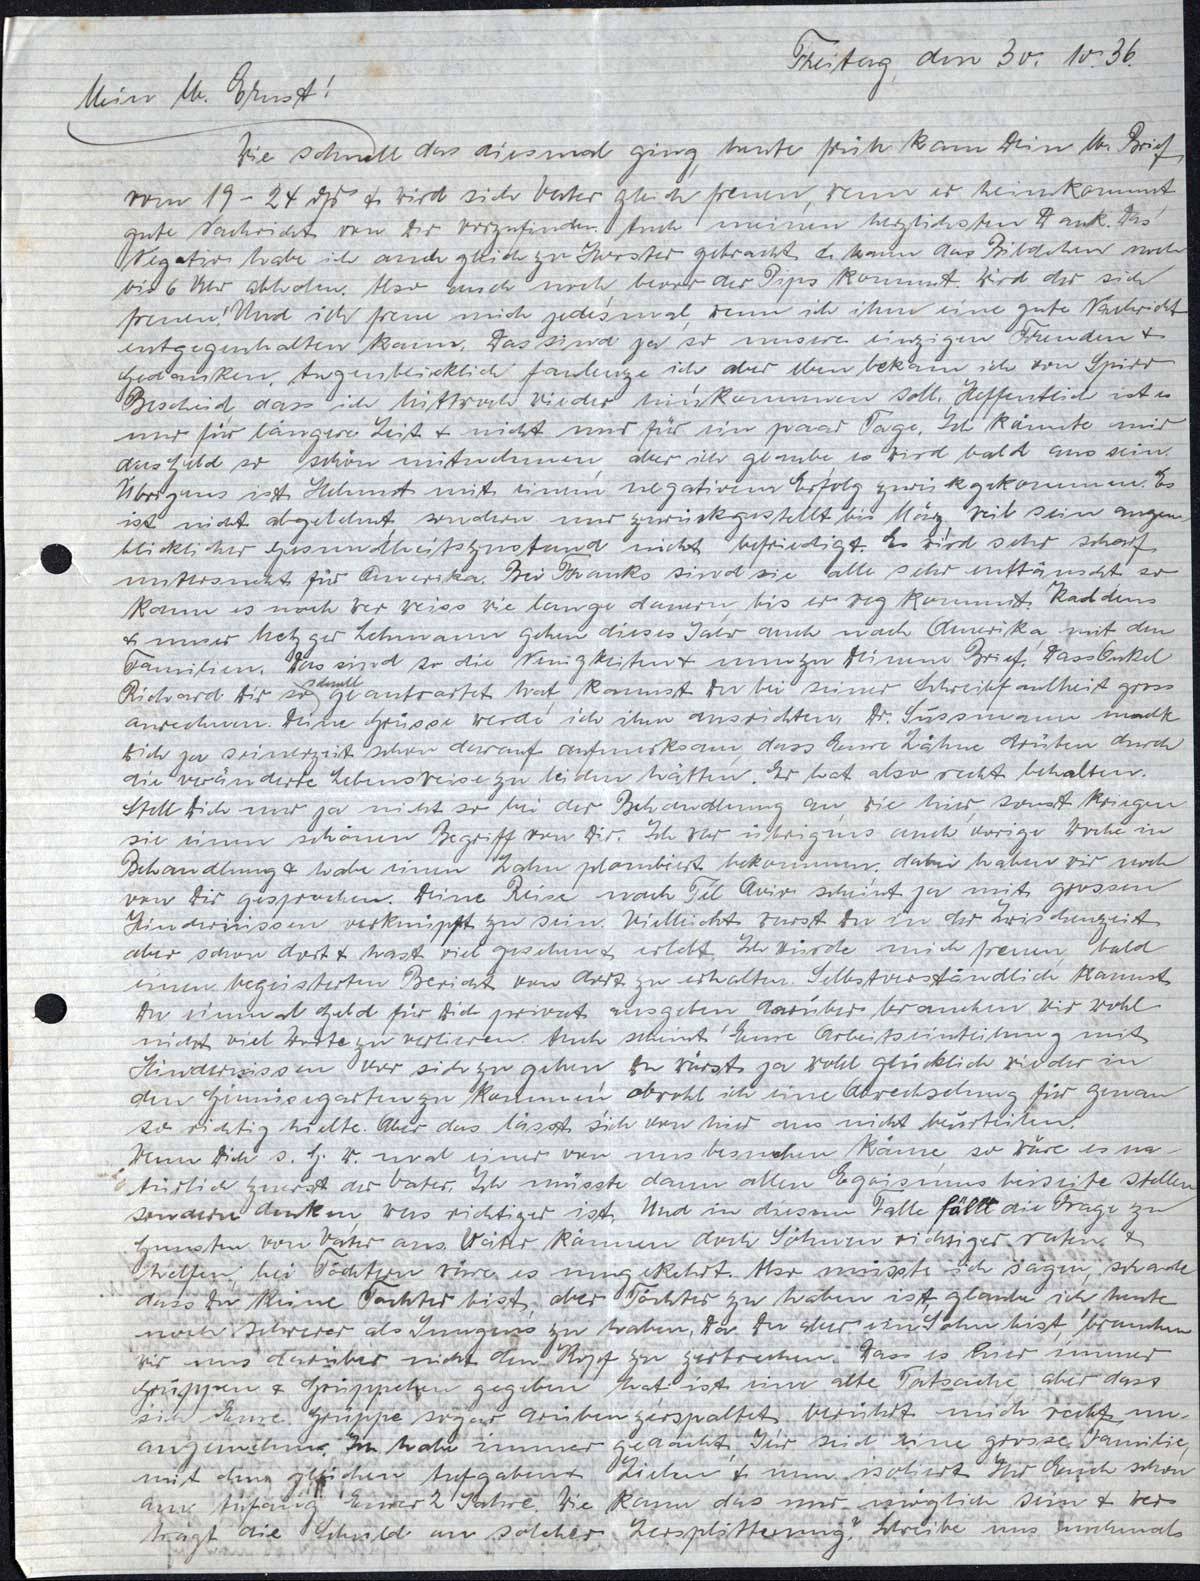 Freitag, den 30. 10. 36.
Mein lb. Ernst!
Wie schnell das diesmal ging, heute früh kam Dein lb. Brief
vom 19 - 24 ds & wird sich Vater gleich freuen, wenn er heimkommt
gute Nachricht von Dir vorzufinden. Auch meinen herzlichsten Dank. Das
Negativ habe ich auch gleich zu gebracht & kann das Bildchen noch
bis 6 Uhr abholen. Also auch noch bevor der Pips kommt. Wird der sich
freuen! Und ich freue mich jedesmal, wenn ich ihm eine gute Nachricht
entgegenhalten kann. Das sind ja so unsere einzigen Freuden &
Gedanken. Augenblicklich faulenze ich aber eben bekam ich von Spier
Bescheid, dass ich Mittwoch wieder hinkommen soll. Hoffentlich ist es
nur für längere Zeit & nicht nur für ein paar Tage. Ich könnte mir
das Geld so schön mitnehmen, aber ich glaube, es wird bald aus sein.
Übrigens ist Helmut mit einem negativem Erfolg zurückgekommen. Es
ist nicht abgelehnt sondern nur zurückgestellt bis März, weil sein augen-
blicklicher Gesundheitszustand nicht befriedigt. Es wird sehr scharf
untersucht für Amerika. Bei Franks sind sie alle sehr enttäuscht so
kann es noch wer weiss wie lange dauern, bis er weg kommt. Kaddens
& unser Metzger Lehmann gehen dieses Jahr auch nach Amerika mit den
Familien. Das sind so die Neuigkeiten & nun zu Deinem Brief. Dass Onkel
Richard Dir so schnell geantwortet hat, kannst Du bei seiner Schreibfaulheit gross
anrechnen. Deine Grüsse werde ich ihm ausrichten. Dr. Süssmann machte
Dich ja seinerzeit schon darauf aufmerksam, dass Eure Zähne drüben durch
die veränderte Lebensweise zu leiden hätten. Er hat also recht behalten.
Stell Dich nur ja nicht so bei der Behandlung an, wie hier, sonst kriegen
sie einen schönen Begriff von Dir. Ich war übrigens auch vorige Woche in
Behandlung & habe einen Zahn plombiert bekommen. dabei haben wir noch
von Dir gesprochen. Deine Reise nach Tel Aviv scheint ja mit grossen
Hindernissen verknüpft zu sein. Vielleicht warst Du in der Zwischenzeit
aber schon dort & hast viel gesehen & erlebt. Ich würde mich freuen, bald
einen begeisterten Bericht von dort zu erhalten. Selbstverständlich kannst
Du einmal Geld für Dich privat ausgeben darüber brauchen wir wohl
nicht viel Worte zu verlieren. Auch scheint Eure Arbeitseinteilung mit
Hindernissen vor sich zu gehen. Du wärst ja wohl glücklich wieder in
den Gemüsegarten zu kommen, obwohl ich eine Abwechselung für genau
so richtig hielte. Aber das lässt sich von hier aus nicht beurteilen.
Wenn Dich s. G. w. mal einer von uns besuchen käme, so wäre es na-
türlich zuerst der Vater. Ich müsste dann allen Egoismus beiseite stellen,
sondern denken, was richtiger ist. Und in diesem Falle fällt die Frage zu
Gunsten von Vater aus. Väter können doch Söhnen richtiger raten &
helfen, bei Töchtern wäre es umgekehrt. Also müsste ich sagen, schade
dass Du keine Tochter bist, aber Töchter zu haben ist, glaube ich, heute
noch schwerer als Jungens zu haben. Da Du aber ein Sohn bist, brauchen
wir uns darüber nicht den Kopf zu zerbrechen. Dass es hier immer
Gruppen & Grüppchen gegeben hat ist eine alte Tatsache, aber dass
sich Eure Gruppe sogar drüben zerspaltet berührt mich recht un-
angenehm. Ich habe immer gedacht, Ihr seid eine grosse Familie,
mit den gleichen Aufgaben & Zielen & nun isoliert Ihr Euch schon
am Anfang Eurer 2 Jahre. Wie kann das nur möglich sein & wer
trägt die Schuld an solcher Zersplitterung? Schreibe uns nochmals